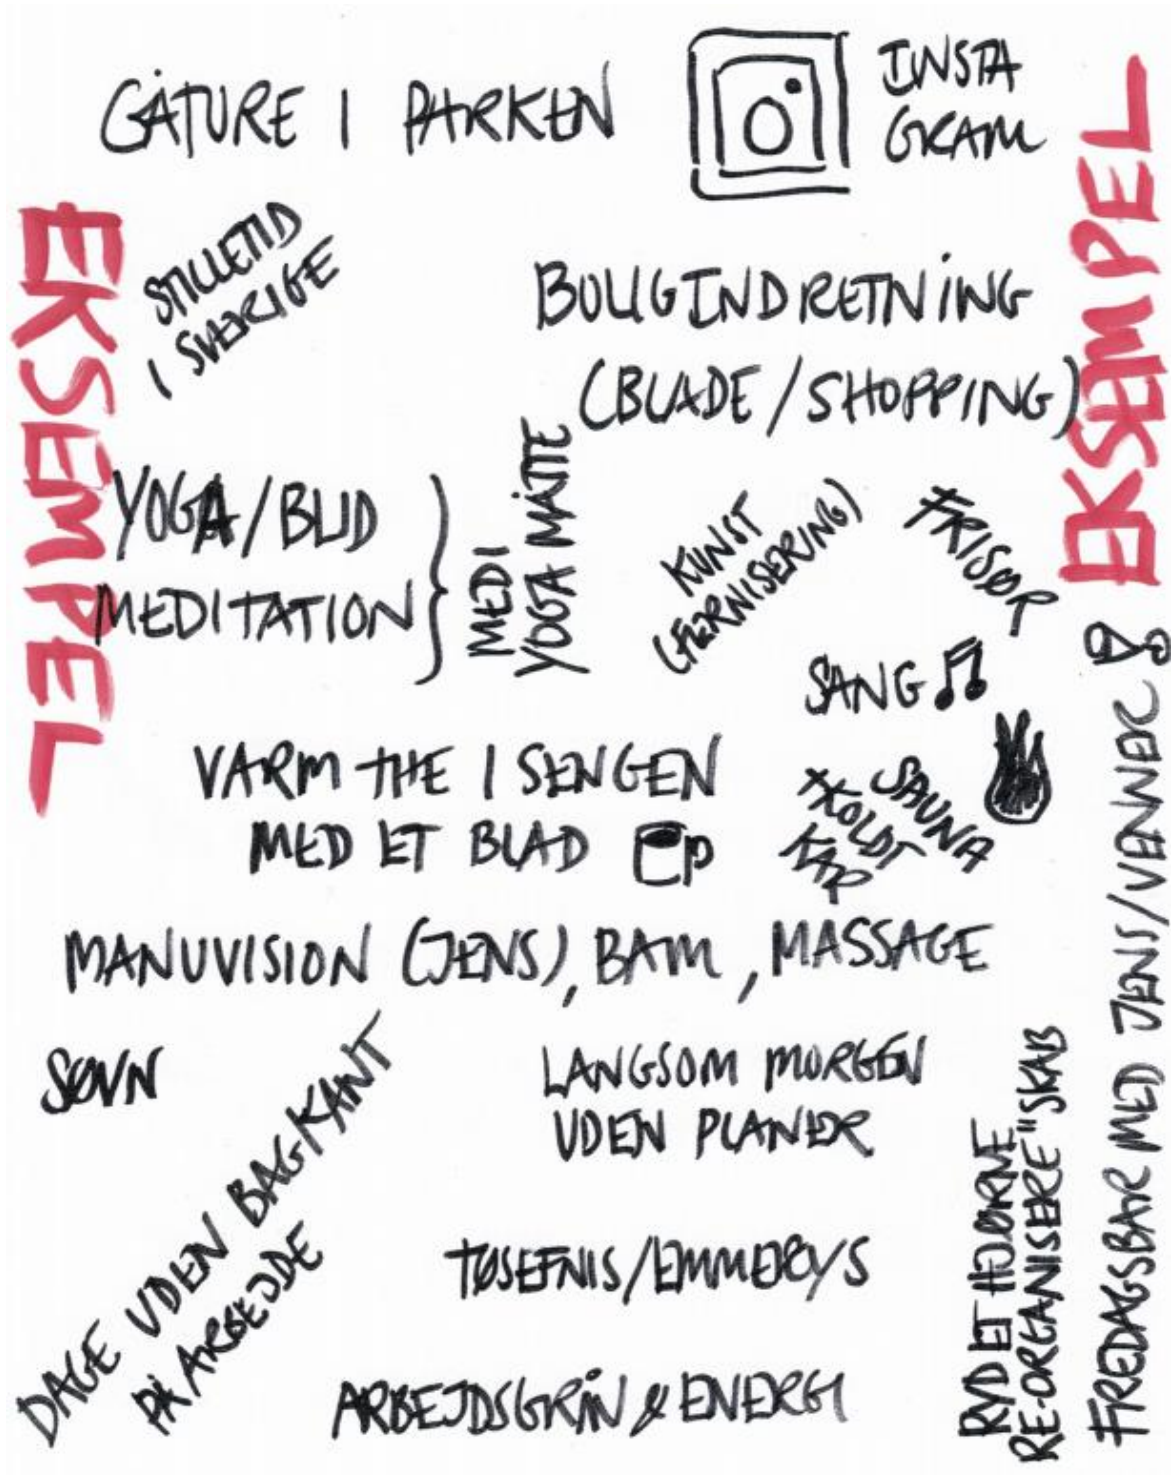 GÅTURE I PARKEN
INSTA
GRAM
EKSEMPEL
EKSEMPEL
STILLETID
I SVERIGE
BOLIGINDRETNING
(BLADE/SHOPPING)
YOGA/BLID
MEDITATION
MEDI
YOGA MÅTTE
KUNST
(FERNISERING)
FRISØR
SANG
VARM THE I SENGEN
MED ET BLAD
SAUNA
+KOLDT
KAR
MANUVISION (JENS), BAM, MASSAGE
SØVN
LANGSOM MORGEN
UDEN PLANER
DAGE UDEN BAGKANT
PÅ ARBEJDE
TØSEFNIS/EMMERYS
ARBEJDSGRIN & ENERGI
RYD ET HJØRNE
RE-ORGANISERE "SKAB
FREDAGSBAR MED JENS/VENNER